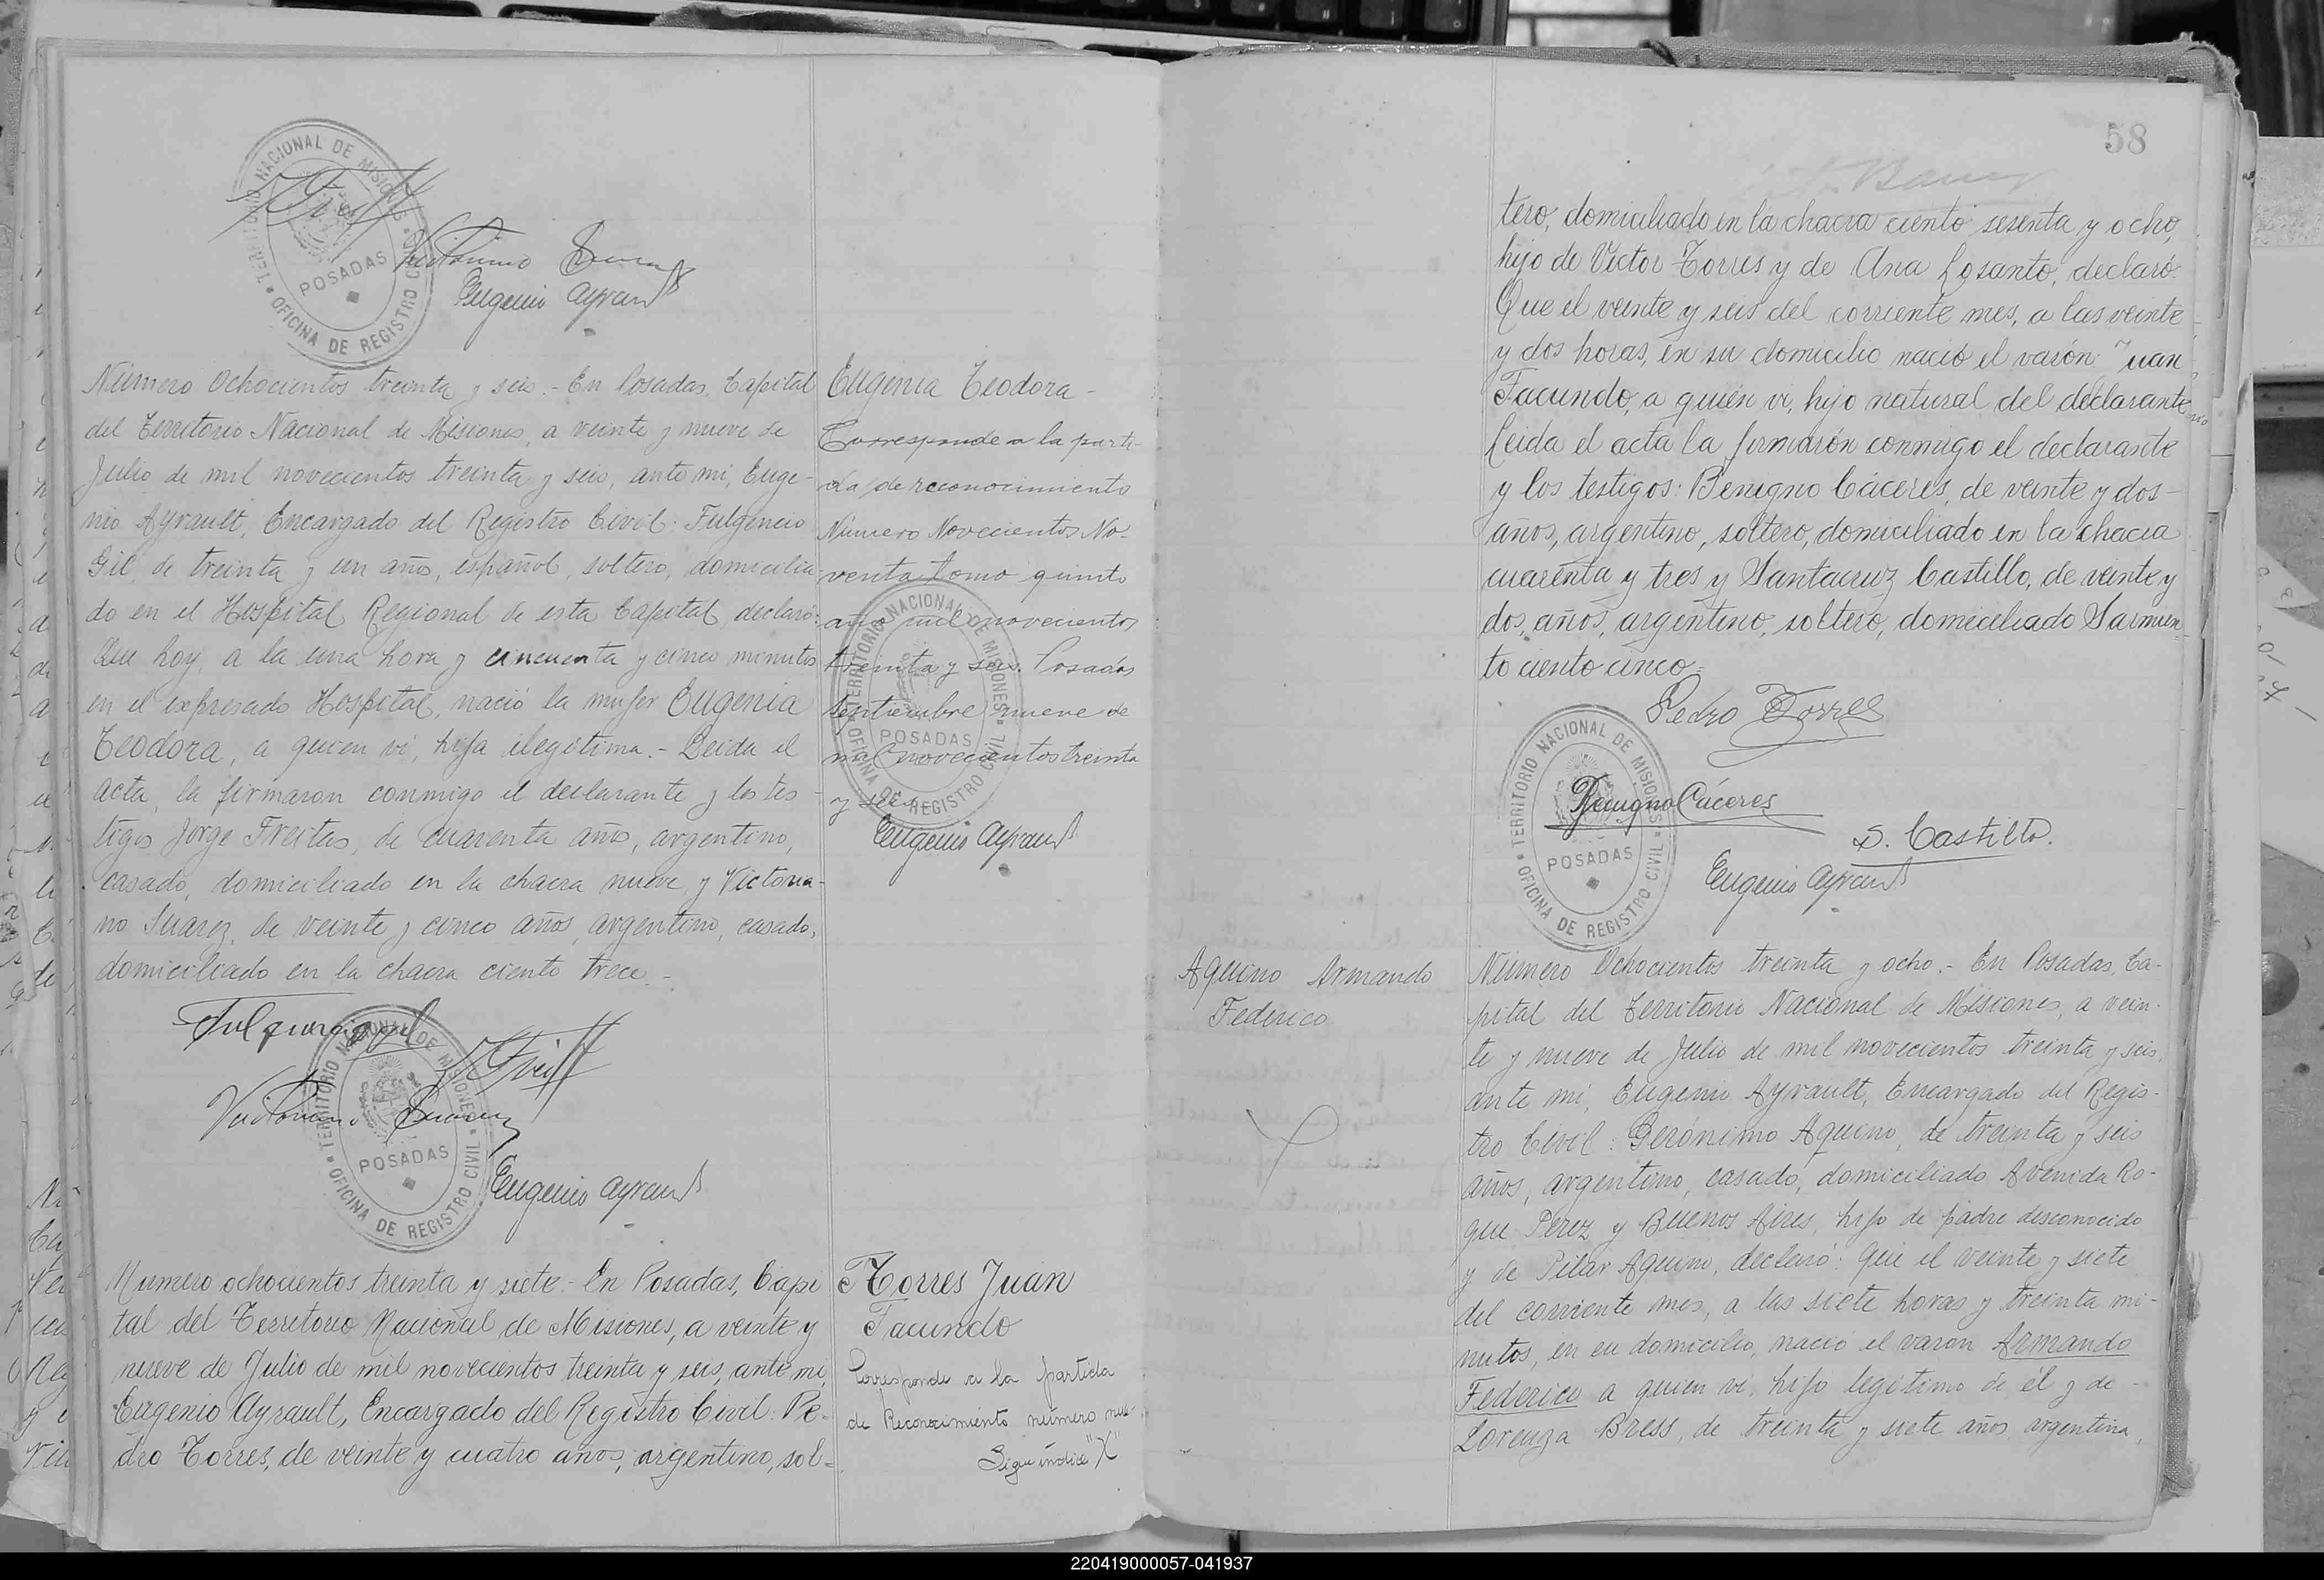 TERRITORIO NACIONAL DE MISIONES
OFICINA DE REGISTRO CIVIL
POSADAS
Eugenio Ayrault
Número Ochocientos treinta y seis.- En Posadas, Capital
del Territorio Nacional de Misiones, a veinte y nueve de
Julio de mil novecientos treinta y seis, ante mi, Euge-
nio Ayrault, Encargado del Registro Civil: Fulgencio
Gil, de treinta y un año, español, soltero, domicilia-
do en el Hospital Regional de esta Capital, declaró:
Que hoy, a la una hora y cincuenta y cinco minutos
en el expresado Hospital, nació la mujer Eugenia
Teodora, a quien vi, hija ilegítima.- Leida el
acta, la firmaron conmigo el declarante y los tes-
tigos Jorge Freitas, de cuarenta año, argentino,
casado, domiciliado en la chacra nueve y Victoria-
no Suarez, de veinte y cinco años, argentino, casado,
domiciliado en la chacra ciento trece.-
Fulgencio Gil
TERRITORIO NACIONAL DE MISIONES
OFICINA DE REGISTRO CIVIL
POSADAS
Eugenio Ayrault
Numero ochocientos treinta y siete.- En Posadas, Capi
tal del Territorio Nacional de Misiones, a veinte y
nueve de Julio de mil novecientos treinta y seis, ante mi,
Eugenio Ayrault, Encargado del Registro Civil: Pe-
dro Torres, de veinte y cuatro años, argentino, sol-
Eugenia Teodora-
Corresponde a la parti-
da de reconocimiento
Número Novecientos No-
venta Tomo quinto
año mil novecientos
treinta y seis. Posadas
Septiembre nueve de
mil novecientos treinta
y seis.
TERRITORIO NACIONAL DE MISIONES
OFICINA DE REGISTRO CIVIL
POSADAS
Eugenio Ayrault
Torres Juan
Facundo
Corresponde a la partida
de Reconocimiento número nue-
Sigue indice "X"
58
tero, domiciliado en la chacra ciento sesenta y ocho,
hijo de Victor Torres y de Ana Losanto, declaró:
Que el veinte y seis del corriente mes, a las veinte
y dos horas, en su domicilio nació el varón Juan
Facundo, a quien vi, hijo natural del declarante
Leida el acta la firmaron conmigo el declarante
y los testigos: Benigno Cáceres, de veinte y dos-
años, argentino, soltero, domiciliado en la chacra
cuarenta y tres y Santacruz Castillo, de veinte y
dos, años, argentino, soltero, domiciliado Sarmien-
to ciento cinco-
Pedro Torres
Benigno Cáceres
S. Castillo.
Eugenio Ayrault
TERRITORIO NACIONAL DE MISIONES
OFICINA DE REGISTRO CIVIL
POSADAS
Aquino Armando
Federico
Número Ochocientos treinta y ocho.- En Posadas, Ca-
pital del Territorio Nacional de Misiones, a vein-
te y nueve de Julio de mil novecientos treinta y seis,
ante mi, Eugenio Ayrault, Encargado del Regis-
tro Civil: Gerónimo Aquino, de treinta y seis
años, argentino, casado, domiciliado Avenida Ro-
que Perez y Buenos Aires, hijo de padre desconocido
y de Pilar Aquino, declaró: Que el veinte y siete
del corriente mes, a las siete horas y treinta mi-
nutos, en su domicilio, nació el varon Armando
Federico a quien vi, hijo legítimo de él y de-
Lorenza Bress, de treinta y siete años, argentina,
220419000057-041937